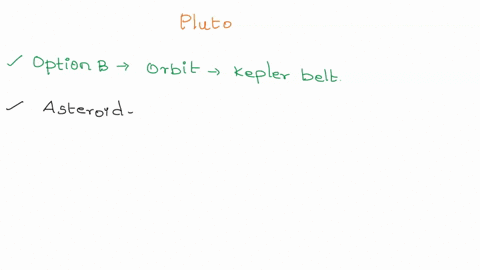 Pluto
✓ Option B → Orbit → Kepler belt.
✓ Asteroid-